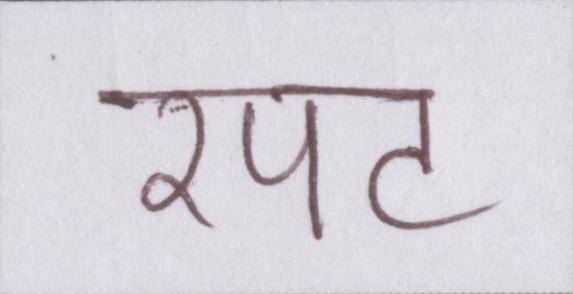 रपट